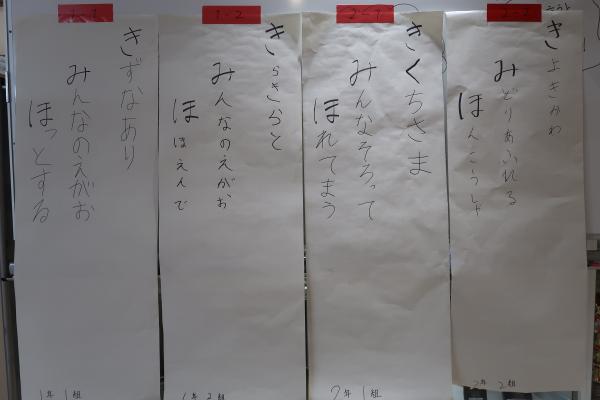 2-2
きよきかわ
みどりあふれる
ほんこうしゃ
2年 2組
2-1
きくちさま
みんなそろって
ほれてまう
2年 1組
1-2
きらきらと
みんなのえがお
ほほえんで
1年 2組
1-1
きずなあり
みんなのえがお
ほっとする
1年 1組